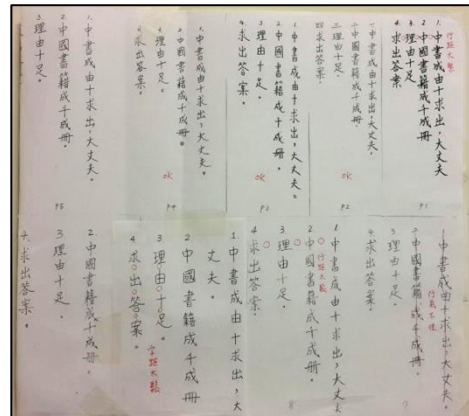 行距太緊
1.中書成由十求出,大丈夫
2.中國書籍成千成冊
3.理由十足
4.求出答案
P1
一.中書成由十求出,大丈夫。
二.中國書籍成千成冊。
三.理由十足。
四.求出答案。
OK
P2
1.中書成由十求出,大丈夫。
2.中國書籍成千成冊。
3.理由十足。
4.求出答案。
OK
P3
1.中書成由十求出,大丈夫。
2.中國書籍成千成冊。
3.理由十足。
4.求出答案。
OK
P4
1.中書成由十求出,大丈夫。
2.中國書籍成千成冊。
3.理由十足。
P5
中書成由十求出,大丈夫。
行氣不佳
2中國書籍成千成冊。
3理由十足。
4.求出答案。
9
1.中書成由十求出,大丈夫
行距太鬆
2.中國書籍成千成冊。
3理由十足。
4求出答案。
8
1中書成由十求出,大
丈夫。
2中國書籍成千成冊
3.理由十足。
4.求出答案。
字距太鬆
2.中國書籍成千成冊。
3理由十足
4.求出答案。